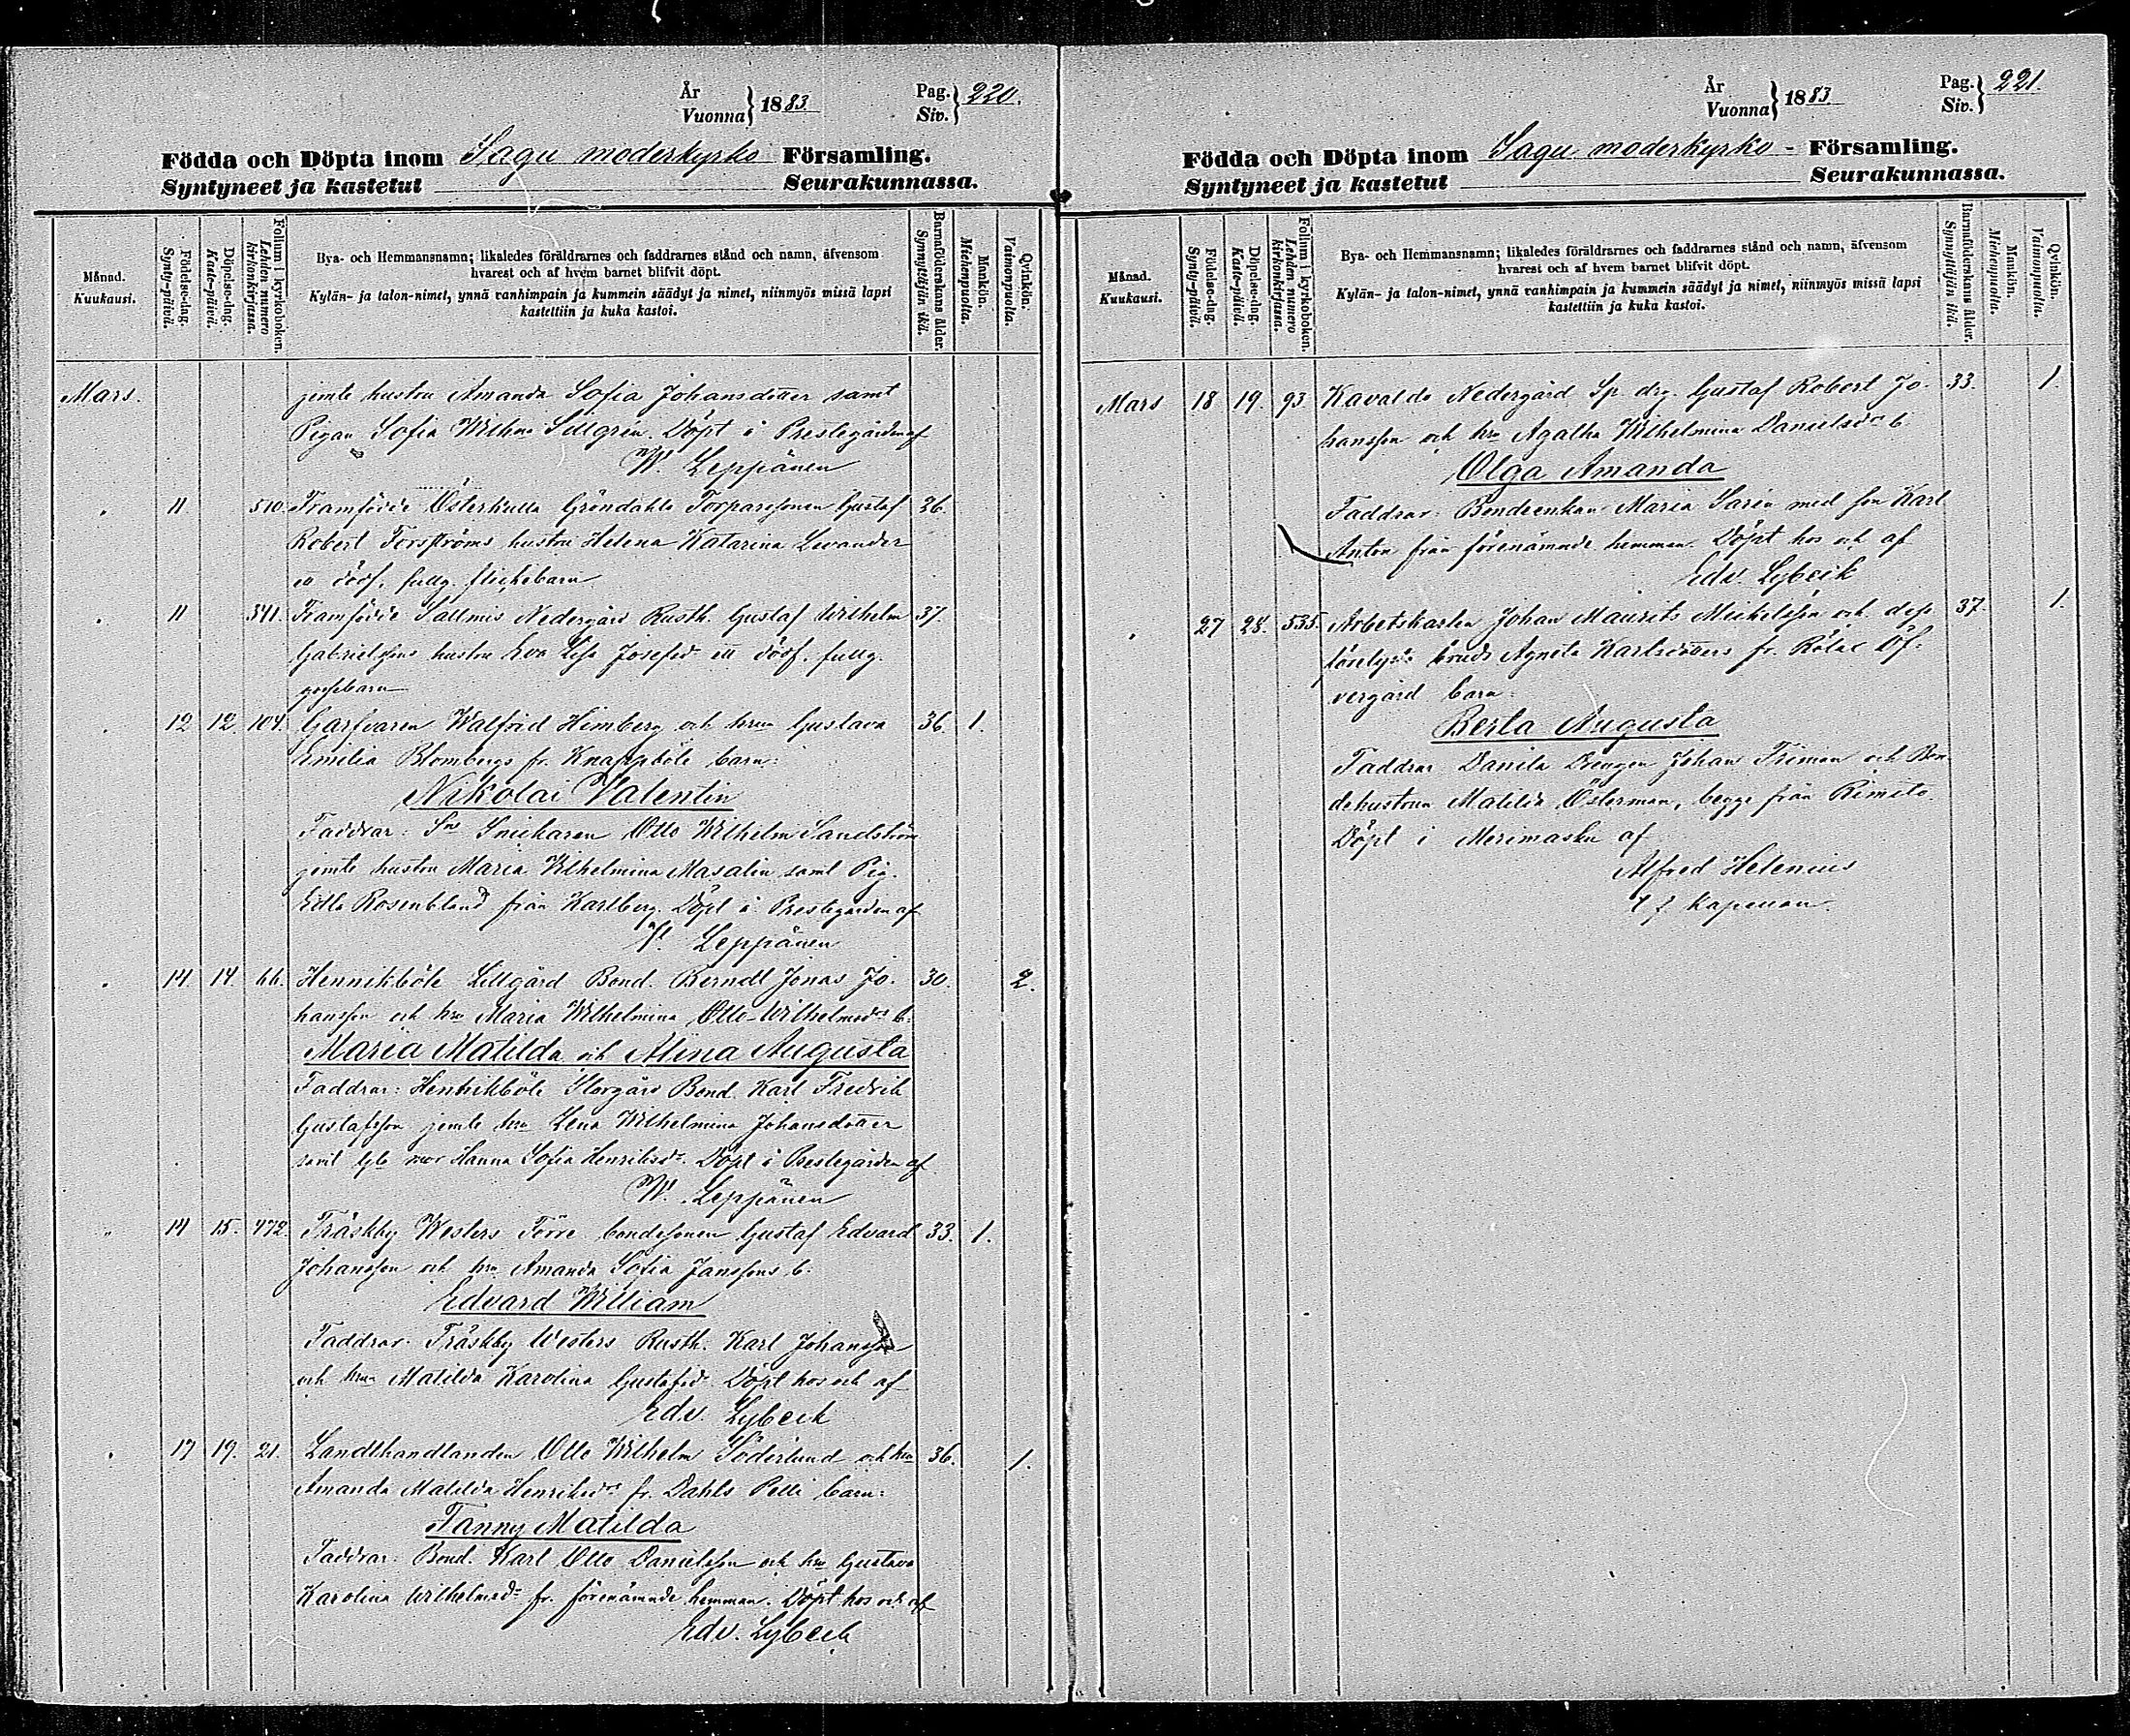 År
Vuonna } 1883.
Pag.
Siv. } 220.
Födda och Döpta inom Sagu moderkyrko Församling.
Syntyneet ja kastetut Seurakunnassa.
Månad.
Kuukausi.
Födelse-dag.
Synty-päivä.
Döpelse-dag.
Kaste-päivä.
Folium i kyrkoboken.
Lehden numero kirkonkirjassa.
Bya- och Hemmansnamn; likaledes föräldrarnes och faddrarnes stånd och namn, äfvensom
hvarest och af hvem barnet blifvit döpt.
Kylän- ja talon-nimet, ynnä vanhimpain ja kummein säädyt ja nimet, niinmyös missä lapsi
kastettiin ja kuka kastoi.
Barnaföderskans ålder.
Synnyttäjän ikä.
Mankön.
Miehenpuolta.
Qvinkön.
Vaimonpuolta.
Mars. jemte hustru Amanda Sofia Johansdotter samt
Pigan Sofia Wilhna Sillgrén. Döpt i Prestegården af
W. Leppänen
" 11 510. Framfödde Österkulla Gröndahls Torparesonen Gustaf 36.
Robert Forsströms hustru Helena Katarina Levander
ett dödf. fullg. flickebarn
" 11 341. Framfödde Sallmis Nedergård Rusth. Gustaf Wilhelm 37.
Gabrielssons hustru Eva Lisa Josefsd. ett dödf. fullg.
gossebarn
" 12 12. 104. Garfvaren Walfrid Himberg och hrun Gustava 36. 1.
Emilia Blombergs fr. Knappböle barn:
Nikolai Valentin
Faddrar: Snickaren Otto Wilhelm Sandström
jemte hustru Maria Wilhelmina Masalin samt Pig.
Edla Rosenblad från Karlberg. Döpt i Prestegården af
W. Leppänen
" 14 14 66. Henrikböle Lillgård Bond. Berndt Jonas Jo- 30. 2.
hansson och hru Maria Wilhelmina Otto-Wilhelmsdrs b:
Maria Matilda och Alina Augusta
Faddrar: Henrikböle Storgård Bond. Karl Fredrik
Gustafsson jemte hru Lena Wilhelmina Johansdotter
samt mor Hanna Sofia Henriksdr. Döpt i Prestegården af
W. Leppänen
" 14 15. 472. Träskby Westers Torre bondesonen Gustaf Edvard 33. 1.
Johansson och hru Amanda Sofia Janssons b.
Edvard William
Faddrar: Träskby Westers Rusth. Karl Johansson
och hrun Matilda Karolina Gustafsdr. Döpt hos och af
Edv. Lybeck
" 17 19. 21. Landthandlanden Otto Wilhelm Söderlund och hru 36. 1.
Amanda Matilda Henriksdrs fr. Dahls Pelli barn:
Fanny Matilda
Faddrar: Bond. Karl Otto Danielsson och hru Gustava
Karolina Wilhelmsdr fr. förenämnde hemman. Döpt hos och af
Edv. Lybeck
År
Vuonna } 1883.
Pag.
Siv. } 221.
Födda och Döpta inom Sagu moderkyrko - Församling.
Syntyneet ja kastetut Seurakunnassa.
Månad.
Kuukausi.
Födelse-dag.
Synty-päivä.
Döpelse-dag.
Kaste-päivä.
Folium i kyrkoboken.
Lehden numero kirkonkirjassa.
Bya- och Hemmansnamn; likaledes föräldrarnes och faddrarnes stånd och namn, äfvensom
hvarest och af hvem barnet blifvit döpt.
Kylän- ja talon-nimet, ynnä vanhimpain ja kummein säädyt ja nimet, niinmyös missä lapsi
kastettiin ja kuka kastoi.
Barnaföderskans ålder.
Synnyttäjän ikä.
Mankön.
Miehenpuolta.
Qvinkön.
Vaimonpuolta.
Mars 18 19. 93. Kavaldo Nedergård Sp. drg. Gustaf Robert Jo- 33. 1.
hansson och hru Agatha Wilhelmina Danielsdr b.
Olga Amanda
Faddrar: Bondeenkan Maria Sarin med son Karl
Anton från förenämnde hemman. Döpt hos och af
Edv. Lybeck
" 27 28. 535. Arbetskarlen Johan Maurits Mickelsson och dess 37. 1.
förelysta bruds Agneta Karlsdotters fr. Rölax Öf-
vergård barn:
Berta Augusta
Faddrar Danila Drengen Johan Friman och Bon-
dehustrun Matilda Österman, begge från Rimito.
Döpt i Merimasku af
Alfred Helenius
t. f. kapellan.